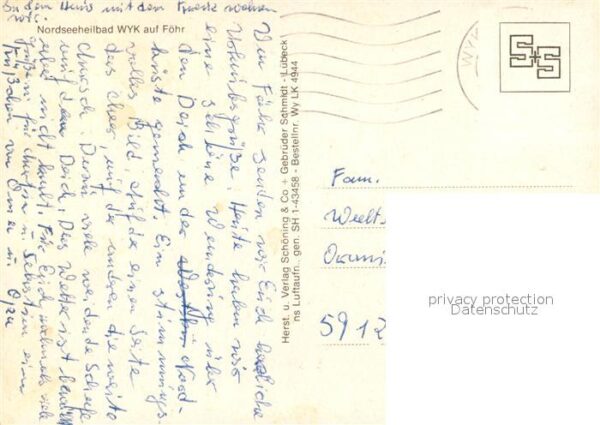 In dem Haus mit dem Kreuz wohnen
wir.
Nordseeheilbad WYK auf Föhr
Von Föhr senden wir Euch herzliche
Urlaubsgrüße. Heute haben wir
eine schöne Wanderung über
den Deich an der Nord-
küste gemacht. Ein stimmungs-
volles Bild, auf der einen Seite
das Meer, auf der anderen die weite
Marsch. Dazu viele weidende Schafe
auf dem Deich. Das Wetter ist
aber nicht kalt. Für Euch nochmals viele
Grüße
von Oma u. Opa
Herst. u. Verlag Schöning & Co + Gebrüder Schmidt - Lübeck
ns Luftaufn. gen. SH 1-43458 - Bestellnr. Wy LK 4944
WYK
S+S
Fam.
5912
privacy protection
Datenschutz